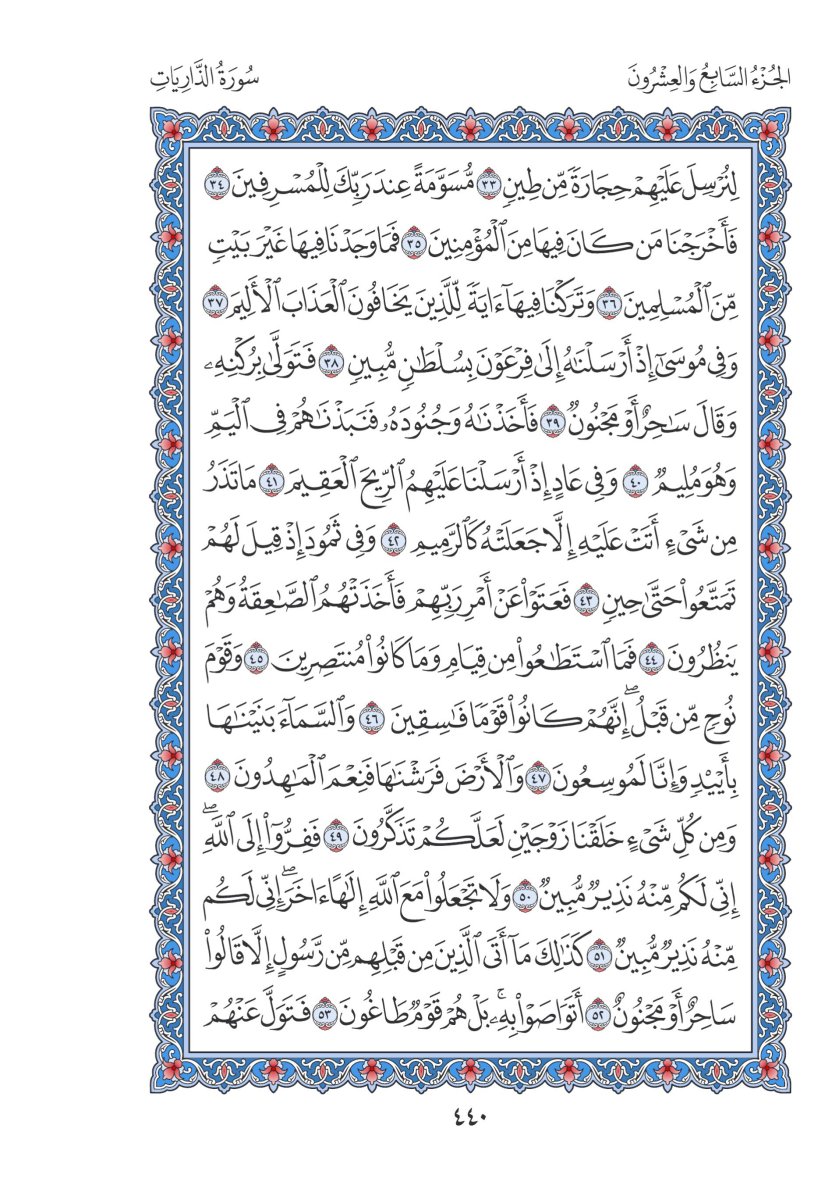 الجُزْءُ السَّابِعُ وَالعِشْرُونَ
سُورَةُ الذَّارِيَاتِ
لِنُرْسِلَ عَلَيْهِمْ حِجَارَةً مِّن طِينٍ ٣٣ مُّسَوَّمَةً عِندَ رَبِّكَ لِلْمُسْرِفِينَ ٣٤
فَأَخْرَجْنَا مَن كَانَ فِيهَا مِنَ ٱلْمُؤْمِنِينَ ٣٥ فَمَا وَجَدْنَا فِيهَا غَيْرَ بَيْتٍ
مِّنَ ٱلْمُسْلِمِينَ ٣٦ وَتَرَكْنَا فِيهَآ ءَايَةً لِّلَّذِينَ يَخَافُونَ ٱلْعَذَابَ ٱلْأَلِيمَ ٣٧
وَفِى مُوسَىٰٓ إِذْ أَرْسَلْنَٰهُ إِلَىٰ فِرْعَوْنَ بِسُلْطَٰنٍ مُّبِينٍ ٣٨ فَتَوَلَّىٰ بِرُكْنِهِۦ
وَقَالَ سَٰحِرٌ أَوْ مَجْنُونٌ ٣٩ فَأَخَذْنَٰهُ وَجُنُودَهُۥ فَنَبَذْنَٰهُمْ فِى ٱلْيَمِّ
وَهُوَ مُلِيمٌ ٤٠ وَفِى عَادٍ إِذْ أَرْسَلْنَا عَلَيْهِمُ ٱلرِّيحَ ٱلْعَقِيمَ ٤١ مَا تَذَرُ
مِن شَىْءٍ أَتَتْ عَلَيْهِ إِلَّا جَعَلَتْهُ كَٱلرَّمِيمِ ٤٢ وَفِى ثَمُودَ إِذْ قِيلَ لَهُمْ
تَمَتَّعُوا۟ حَتَّىٰ حِينٍ ٤٣ فَعَتَوْا۟ عَنْ أَمْرِ رَبِّهِمْ فَأَخَذَتْهُمُ ٱلصَّٰعِقَةُ وَهُمْ
يَنظُرُونَ ٤٤ فَمَا ٱسْتَطَٰعُوا۟ مِن قِيَامٍ وَمَا كَانُوا۟ مُنتَصِرِينَ ٤٥ وَقَوْمَ
نُوحٍ مِّن قَبْلُ ۖ إِنَّهُمْ كَانُوا۟ قَوْمًا فَٰسِقِينَ ٤٦ وَٱلسَّمَآءَ بَنَيْنَٰهَا
بِأَيْي۟دٍ وَإِنَّا لَمُوسِعُونَ ٤٧ وَٱلْأَرْضَ فَرَشْنَٰهَا فَنِعْمَ ٱلْمَٰهِدُونَ ٤٨
وَمِن كُلِّ شَىْءٍ خَلَقْنَا زَوْجَيْنِ لَعَلَّكُمْ تَذَكَّرُونَ ٤٩ فَفِرُّوٓا۟ إِلَى ٱللَّهِ ۖ
إِنِّى لَكُم مِّنْهُ نَذِيرٌ مُّبِينٌ ٥٠ وَلَا تَجْعَلُوا۟ مَعَ ٱللَّهِ إِلَٰهًا ءَاخَرَ ۖ إِنِّى لَكُم
مِّنْهُ نَذِيرٌ مُّبِينٌ ٥١ كَذَٰلِكَ مَآ أَتَى ٱلَّذِينَ مِن قَبْلِهِم مِّن رَّسُولٍ إِلَّا قَالُوا۟
سَاحِرٌ أَوْ مَجْنُونٌ ٥٢ أَتَوَاصَوْا۟ بِهِۦ ۚ بَلْ هُمْ قَوْمٌ طَاغُونَ ٥٣ فَتَوَلَّ عَنْهُمْ
٤٤٠